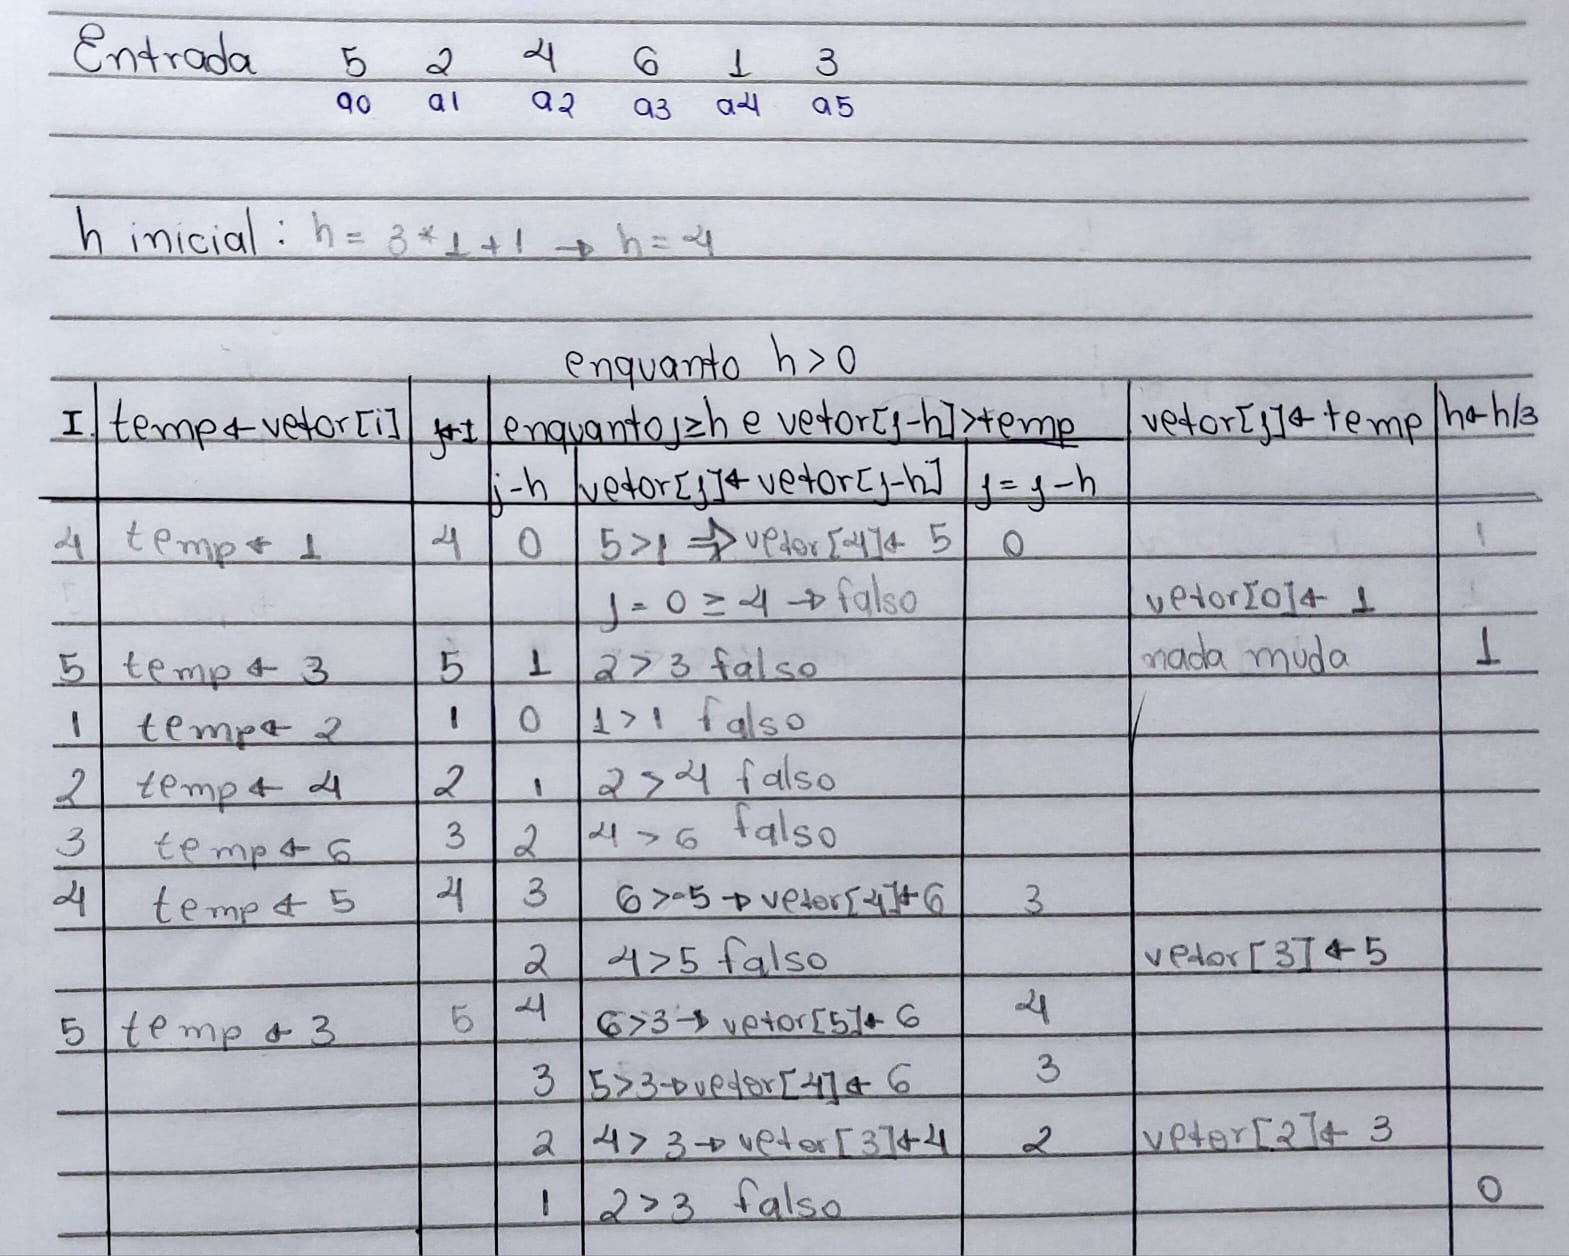 Entrada 5 2 4 6 1 3
a0 a1 a2 a3 a4 a5
h inicial: h = 3*1+1 → h = 4
enquanto h > 0
I temp ← vetor[i] j←I enquanto j≥h e vetor[j-h]>temp vetor[j] ← temp h←h/3
j-h vetor[j] ← vetor[j-h] j = j-h
4 temp ← 1 4 0 5>1 → vetor[4] ← 5 0 1
j = 0 ≥ 4 → falso vetor[0] ← 1
5 temp ← 3 5 1 2 > 3 falso nada muda 1
1 temp ← 2 1 0 1 > 1 falso
2 temp ← 4 2 1 2 > 4 falso
3 temp ← 6 3 2 4 > 6 falso
4 temp ← 5 4 3 6 > 5 → vetor[4] ← 6 3
2 4 > 5 falso vetor[3] ← 5
5 temp ← 3 5 4 6>3 → vetor[5] ← 6 4
3 5>3 → vetor[4] ← 6 3
2 4 > 3 → vetor[3] ← 4 2 vetor[2] ← 3
1 2 > 3 falso 0